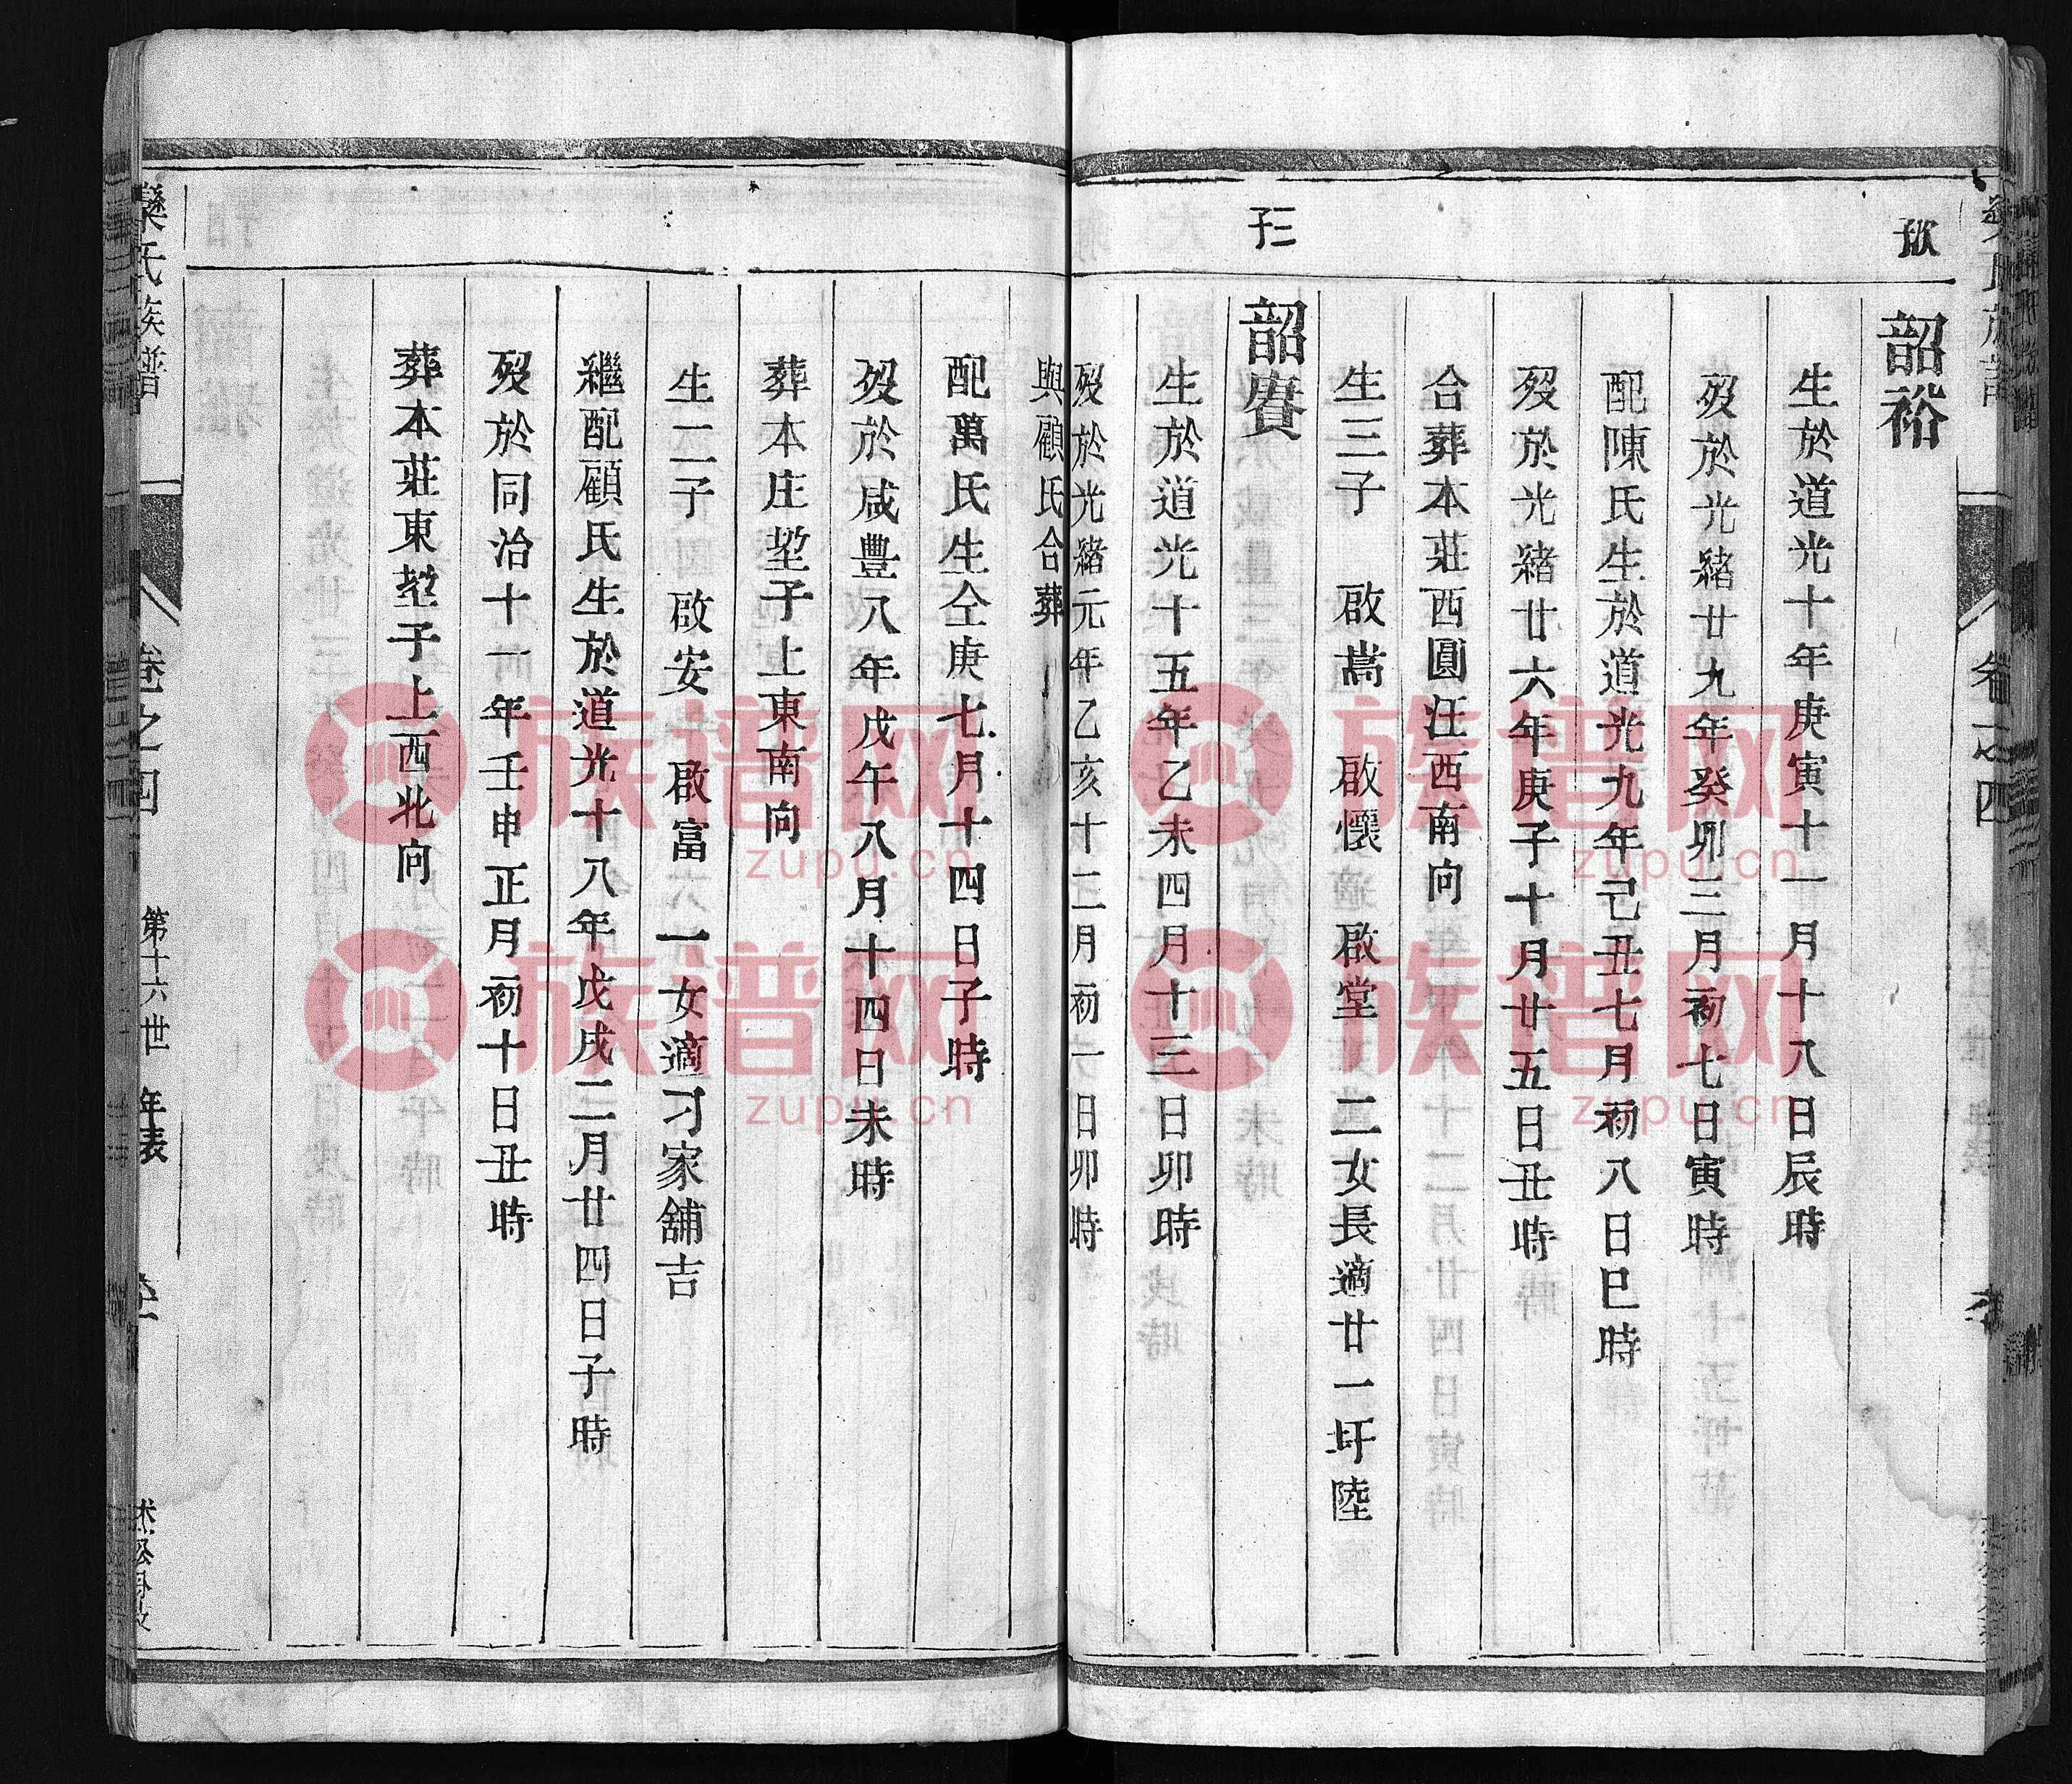 欽
韶裕
生於道光十年庚寅十一月十八日辰時
歿於光緒廿九年癸卯三月初七日寅時
配陳氏生於道光九年己丑七月初八日巳時
歿於光緒廿六年庚子十月廿五日丑時
合葬本莊西圓圩西南向
生三子 啟嵩 啟懷 啟堂 二女長適廿一圩陸
子三
韶賡
生於道光十五年乙未四月十三日卯時
歿於光緒元年乙亥十二月初一日卯時
與顧氏合葬
配萬氏生仝庚七月十四日子時
歿於咸豐八年戊午八月十四日未時
葬本庄埊子上東南向
生二子 啟安 啟富 一女適刁家舖吉
繼配顧氏生於道光十八年戊戌二月廿四日子時
歿於同治十一年壬申正月初十日丑時
葬本莊東埊子上西北向
欒氏族譜
卷之四
第十六世 年表
族譜网
zupu.cn
族譜网
zupu.cn
族譜网
zupu.cn
族譜网
zupu.cn